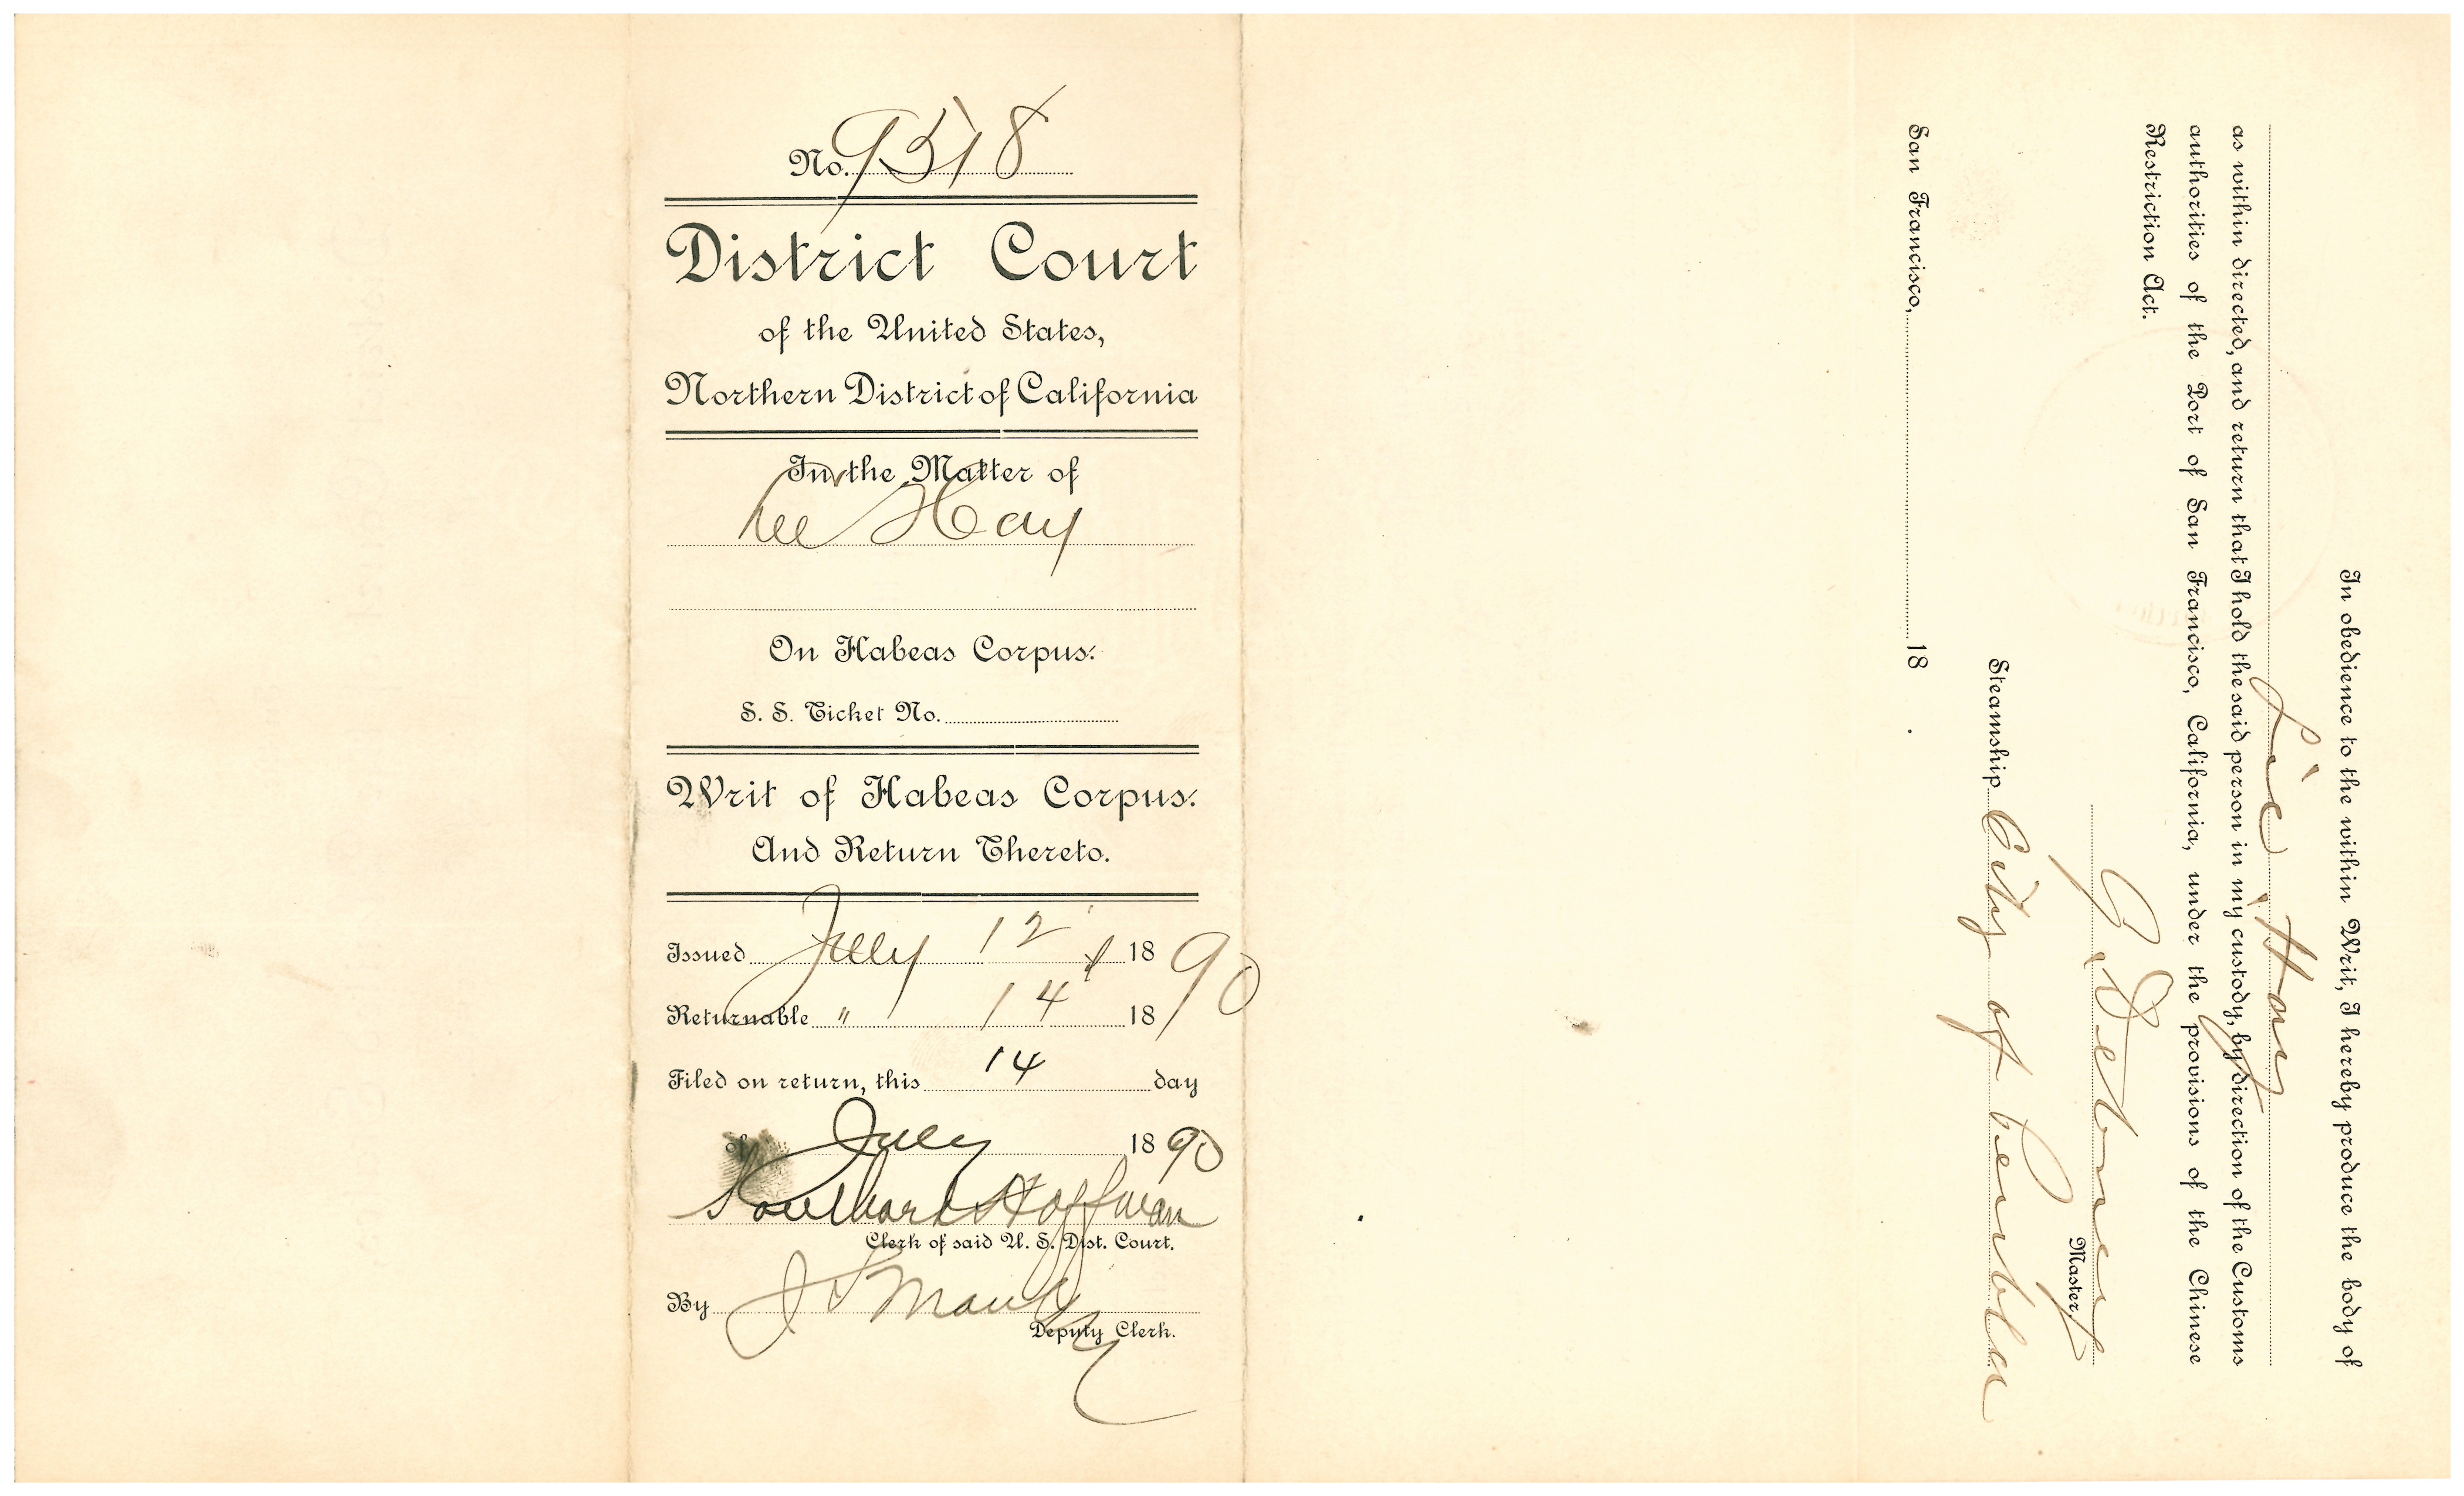 No. 9518
District Court
of the United States,
Northern District of California
In the Matter of
Lee Hay
On Habeas Corpus.
S. S. Ticket No.
Writ of Habeas Corpus.
And Return Thereto.
Issued July 12 1890
Returnable " 14 1890
Filed on return, this 14 day
of July 1890
Southard Hoffman
Clerk of said U. S. Dist. Court.
By
Deputy Clerk.
In obedience to the within Writ, I hereby produce the body of
Hay
as within directed, and return that I hold the said person in my custody, by direction of the Customs
authorities of the Port of San Francisco, California, under the provisions of the Chinese
Restriction Act.
Master,
Steamship City of
San Francisco, 18